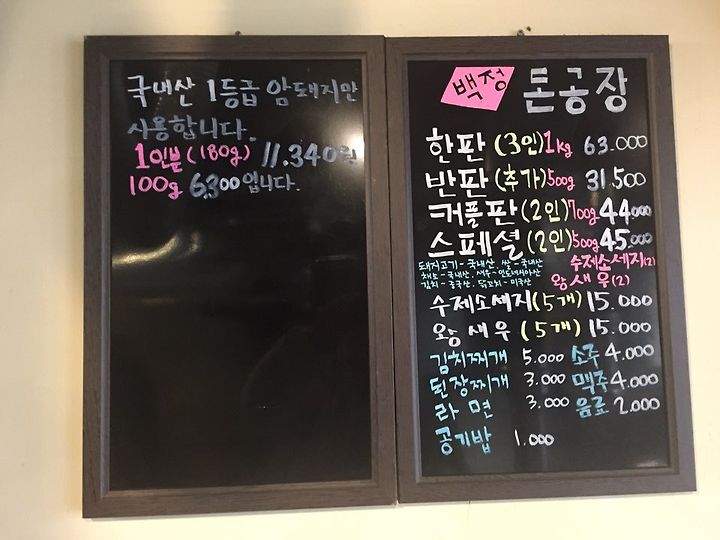 국내산 1등급 암돼지만
사용합니다.
1인분(180g) 11.340원
100g 6.300입니다.
백정 돈공장
한판(3인)1kg 63.000
반판(추가)500g 31.500
커플판(2인)700g 44.000
스페셜(2인)500g 45.000
수제소세지(2)
왕새우(2)
돼지고기-국내산, 쌀-국내산
채소-국내산, 새우-인도네시아산
김치-중국산, 닭꼬치-미국산
수제소세지(5개) 15.000
왕새우(5개) 15.000
김치찌개 5.000 소주 4.000
된장찌개 3.000 맥주 4.000
라면 3.000 음료 2.000
공기밥 1.000